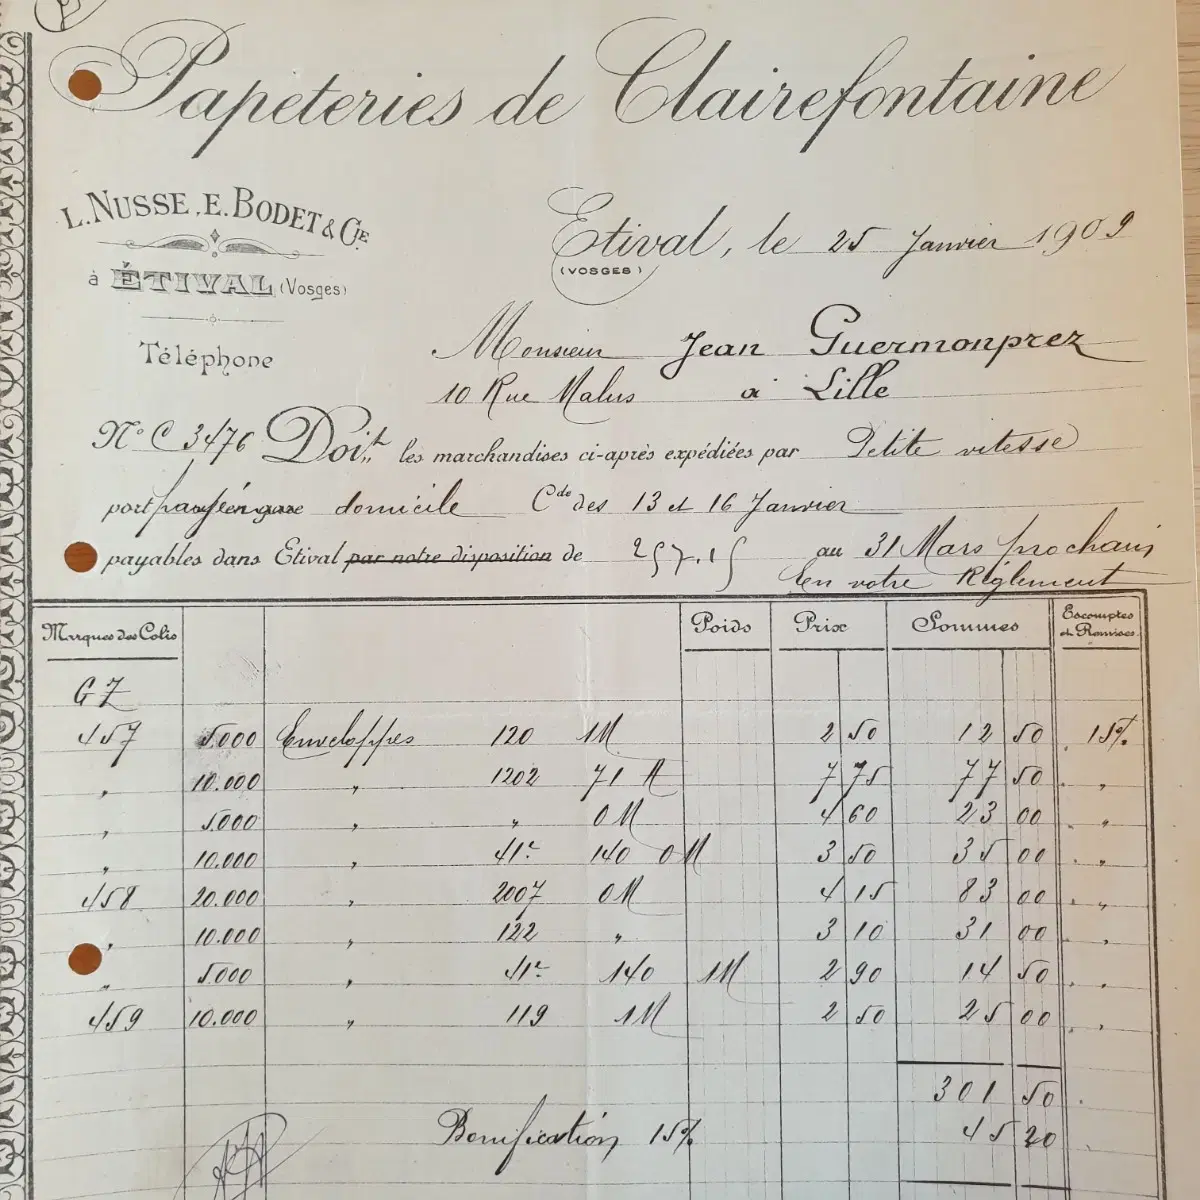 Papeteries de Clairefontaine
L. NUSSE, E. BODET & CIE
à ÉTIVAL (Vosges)
Téléphone
Etival, le 25 Janvier 1909
(VOSGES)
Monsieur Jean Guermonprez
10 Rue Malus à Lille
No C 3476 Doit les marchandises ci-après expédiées par Petite vitesse
port payé en gare domicile Cde des 13 et 16 Janvier
payables dans Etival par notre disposition de 257.15 au 31 Mars prochain
en votre Règlement
Marques des Colis Poids Prix Sommes Escomptes et Remises
GZ
457 5.000 Enveloppes 120 1M 2 50 12 50 15%
" 10.000 " 1202 71 M 7 75 77 50 "
" 5.000 " " 0M 4 60 23 00 "
" 10.000 " 41r 140 0M 3 50 35 00 "
458 20.000 " 2007 0M 4 15 83 00 "
" 10.000 " 122 " 3 10 31 00 "
" 5.000 " 41r 140 1M 2 90 14 50 "
459 10.000 " 119 1M 2 50 25 00 "
301 50
Bonification 15% 45 20